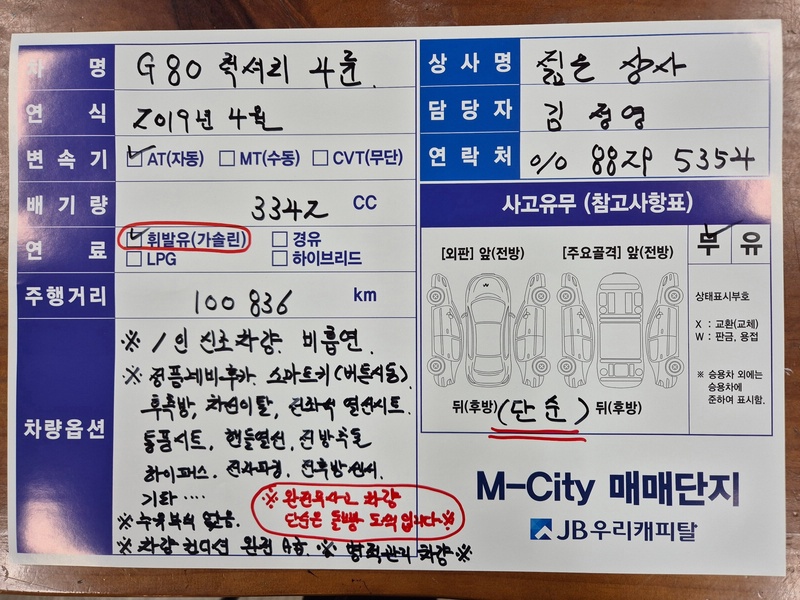 차 명 G80 럭셔리 4륜
연 식 2019년 4월
변 속 기 AT(자동) MT(수동) CVT(무단)
배 기 량 3342 CC
연 료 휘발유(가솔린) 경유
LPG 하이브리드
주행거리 100 836 km
차량옵션
※ 1인 신조차량. 비흡연.
※ 정품네비후카. 스마트키(버튼시동).
후측방, 차선이탈, 전좌석 열선시트.
통풍시트, 핸들열선, 전방추돌
하이패스. 전자파킹. 전후방센서.
기타 ····
※ 완전무사고 차량
단순은 돌빵 도색입니다※
※누유부식 없음.
※ 차량 컨디션 완전 A급 ※ 명책관리 차량※
상 사 명 젊은 상사
담 당 자 김 정영
연 락 처 010 8828 5354
사고유무 (참고사항표)
무 유
[외판] 앞(전방) [주요골격] 앞(전방)
상태표시부호
X : 교환(교체)
W : 판금, 용접
※ 승용차 외에는
승용차에
준하여 표시함.
뒤(후방) (단순) 뒤(후방)
M-City 매매단지
JB우리캐피탈